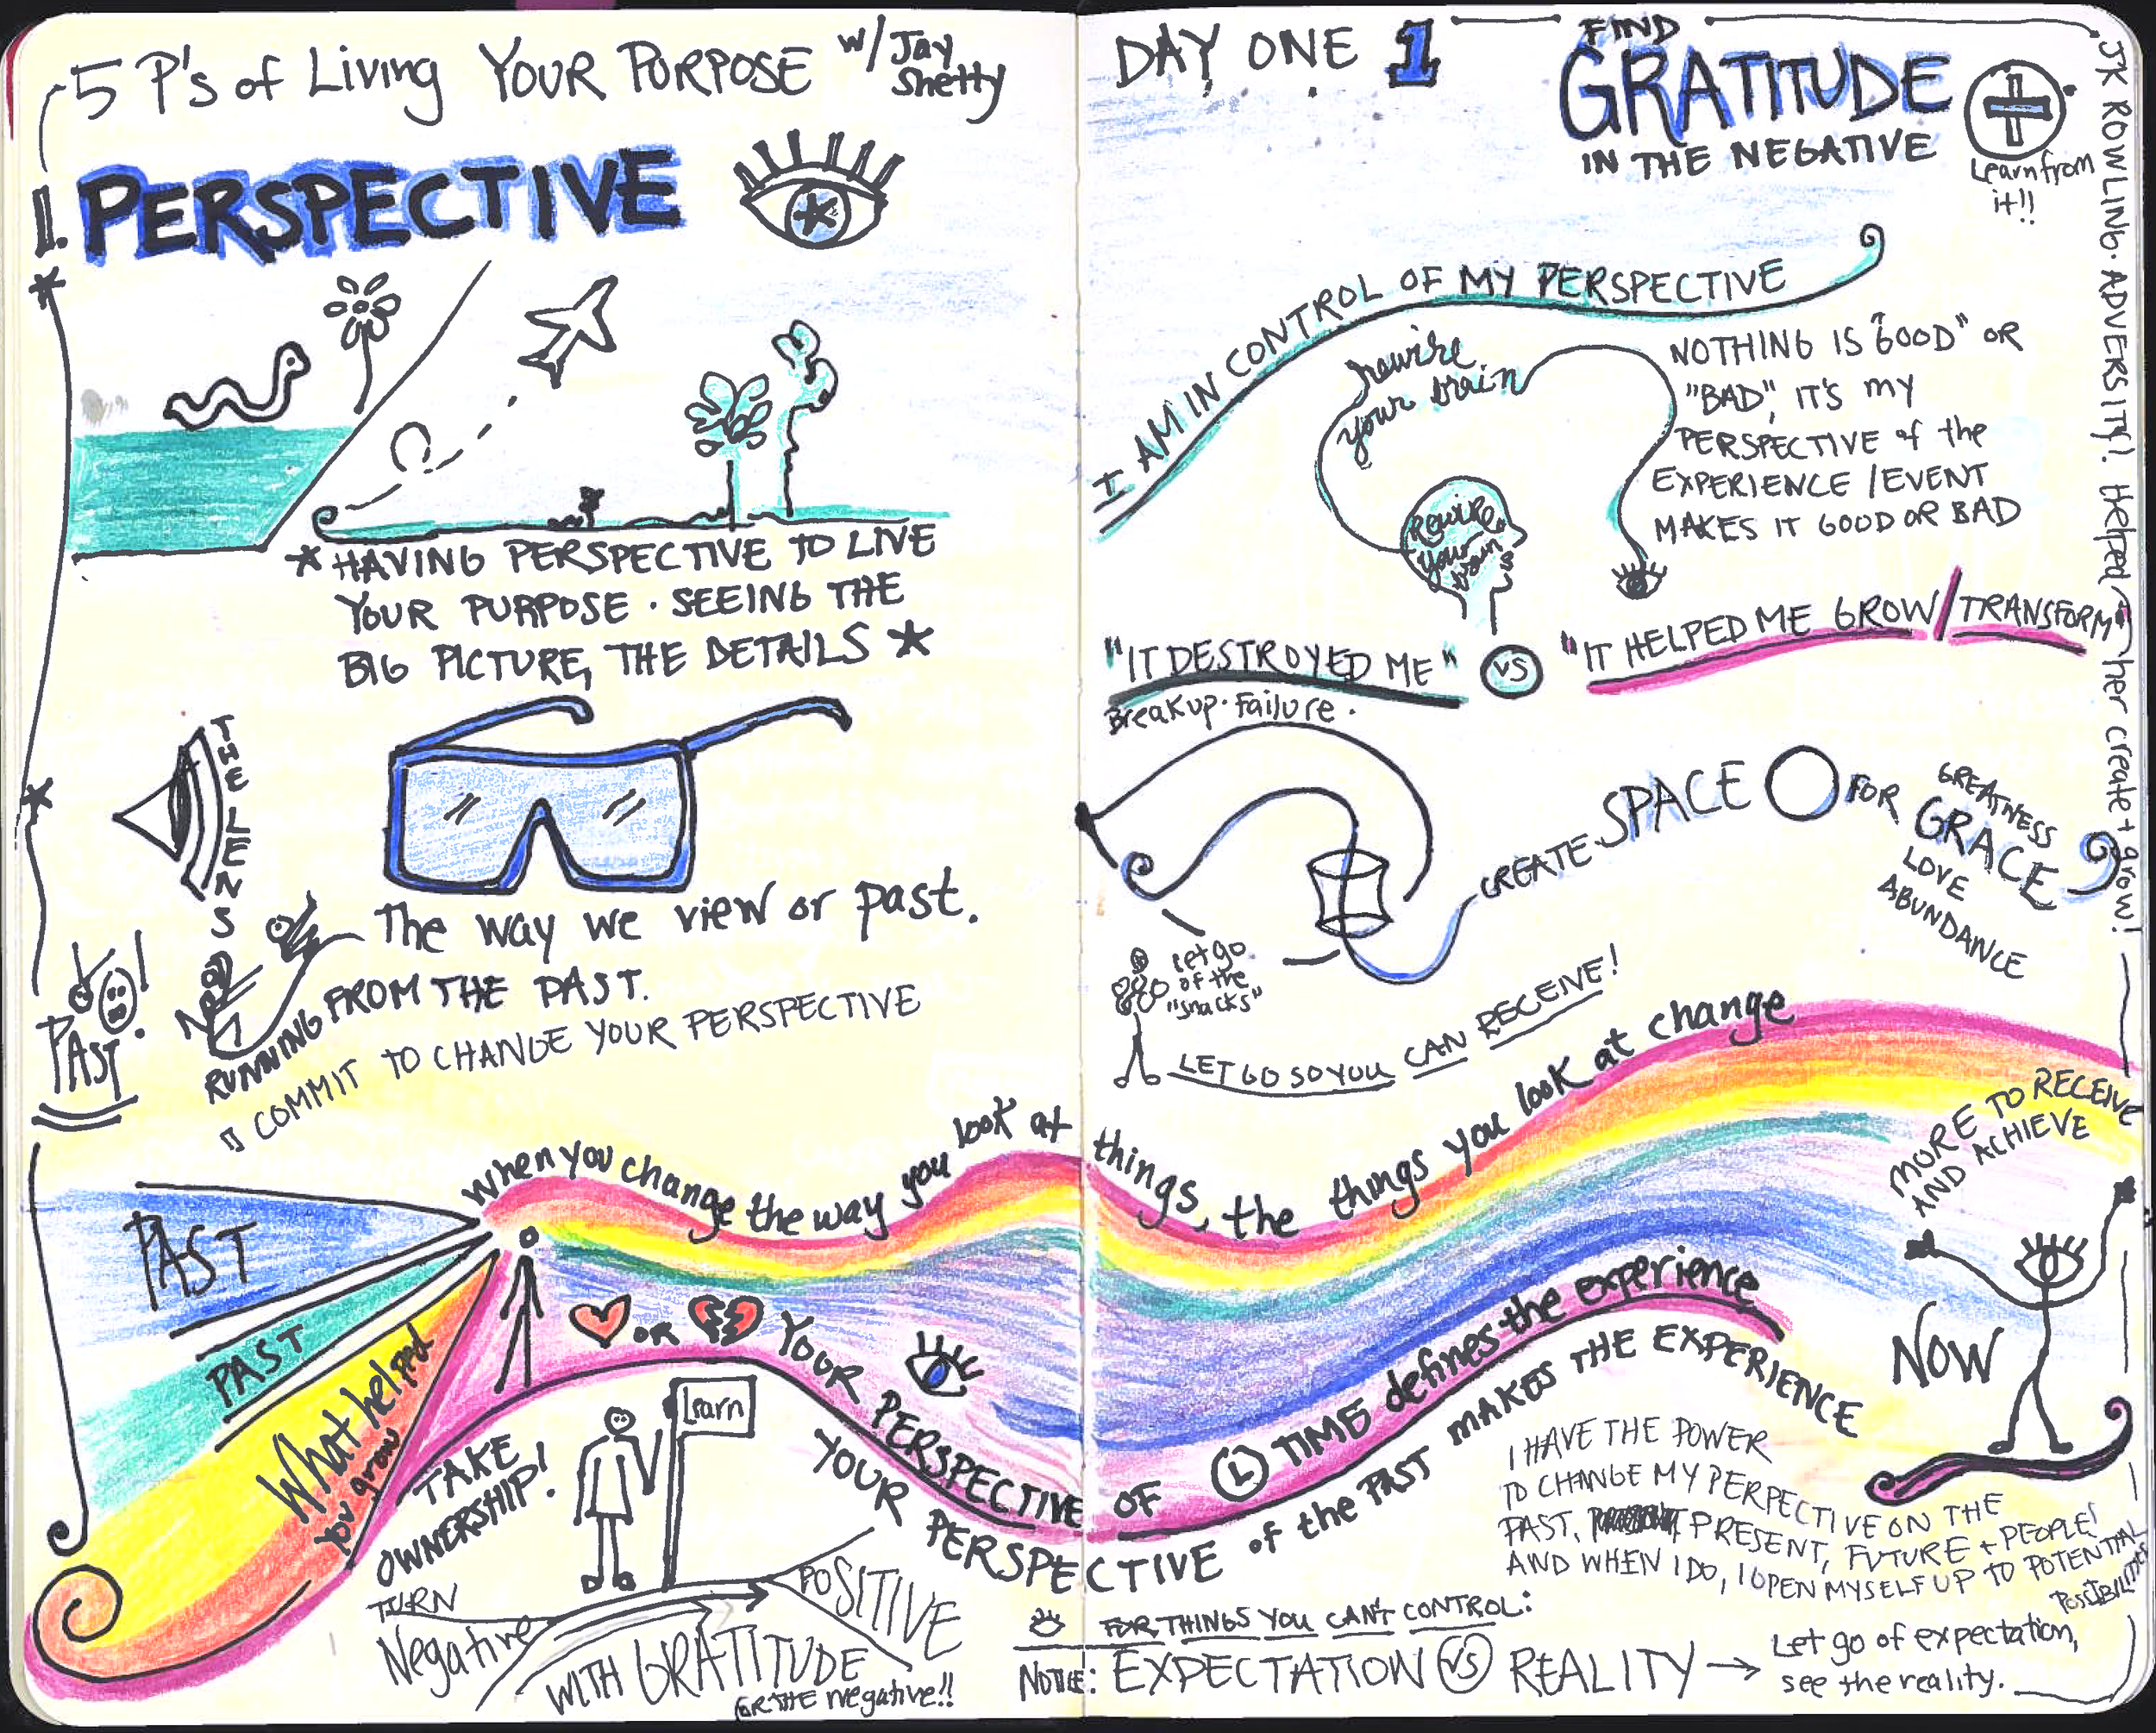 5 P's of Living YOUR PURPOSE w/ Jay Shetty
1. PERSPECTIVE
* HAVING PERSPECTIVE TO LIVE
YOUR PURPOSE · SEEING THE
BIG PICTURE, THE DETAILS *
THE LENS
The way we view or past.
PAST!
RUNNING FROM THE PAST.
COMMIT TO CHANGE YOUR PERSPECTIVE
DAY ONE 1
FIND
GRATITUDE
IN THE NEGATIVE
Learn from
it!!
JK ROWLING · ADVERSITY! Helped her create + grow!
I AM IN CONTROL OF MY PERSPECTIVE
rewire
your brain
Rewire
your
brain
NOTHING IS "GOOD" OR
"BAD", IT'S MY
PERSPECTIVE of the
EXPERIENCE / EVENT
MAKES IT GOOD OR BAD
"IT DESTROYED ME" VS "IT HELPED ME GROW / TRANSFORM"
Breakup · Failure ·
CREATE · SPACE FOR
GREATNESS
GRACE
LOVE
ABUNDANCE
Let go
of the
"snacks"
LET GO SO YOU CAN RECEIVE!
when you change the way you look at things, the things you look at change
MORE TO RECEIVE
AND ACHIEVE
PAST
PAST
What helped
you grow
OR
YOUR PERSPECTIVE OF TIME defines the experience
YOUR PERSPECTIVE of the PAST MAKES THE EXPERIENCE
NOW
TAKE
OWNERSHIP!
Learn
TURN
Negative
POSITIVE
WITH GRATITUDE
FOR THE negative!!
I HAVE THE POWER
TO CHANGE MY PERPECTIVE ON THE
PAST, PRESENT, FUTURE + PEOPLE!
AND WHEN I DO, I OPEN MYSELF UP TO POTENTIAL
POSSIBILITIES
FOR THINGS YOU CAN'T CONTROL:
NOTICE: EXPECTATION VS REALITY →
Let go of expectation,
see the reality.